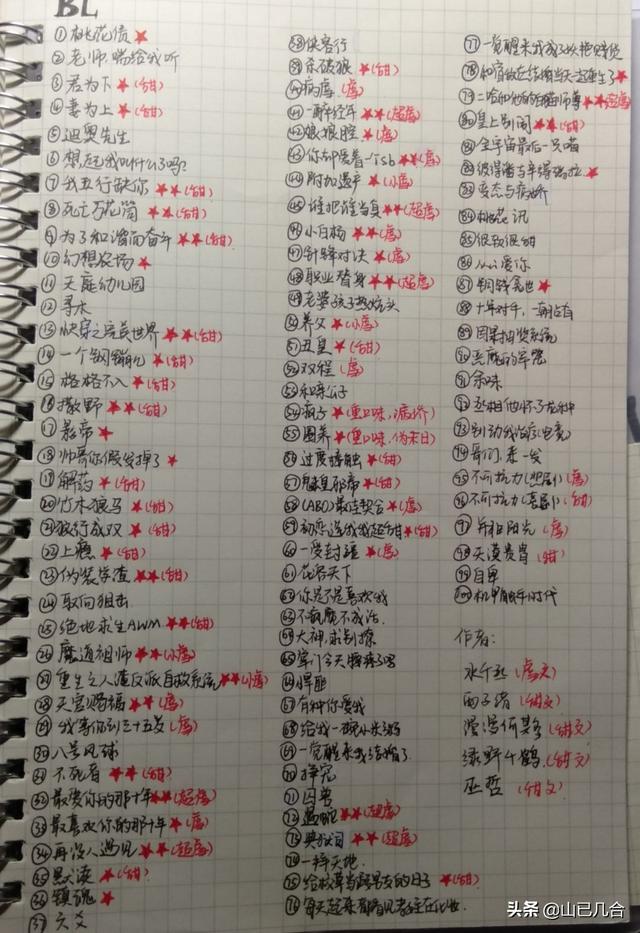 BL
①桃花债★
②老师,喘给我听
③君为下★(甜)
④妻为上★(甜)
⑤迪奥先生
⑥想起我叫什么了吗?
⑦我五行缺你★★(甜)
⑧死亡万花筒★★(甜)
⑨为了和谐而奋斗★★(甜)
⑩幻想农场★
⑪天庭幼儿园
⑫寻木
⑬快穿之完美世界★★(甜)
⑭一个钢镚儿★(甜)
⑮格格不入★(甜)
⑯撒野★★(甜)
⑰影帝★
⑱帅哥你假发掉了★
⑲解药★(甜)
⑳竹木狼马★(甜)
㉑狼行成双★(甜)
㉒上瘾★(甜)
㉓伪装学渣★★(甜)
㉔取向狙击
㉕绝地求生AWM★★(甜)
㉖魔道祖师★★(小虐)
㉗重生之人渣反派自救系统★★(小虐)
㉘天官赐福★★(虐)
㉙我等你到三十五岁(虐)
㉚八号风球
㉛不死者★★(甜)
㉜最爱你的那十年★★(超虐)
㉝最喜欢你的那十年★(虐)
㉞再没人遇见★★(超虐)
㉟默读★(甜)
㊱镇魂★
㊲六爻
㊳侠客行
㊴杀破狼★(甜)
㊵病虐(虐)
㊶一醉经年★★(超虐)
㊷娘娘腔★(虐)
㊸你却爱着一个sb★★(虐)
㊹附加遗产★(小虐)
㊺谁把谁当真★★(超虐)
㊻小白杨★★(虐)
㊼针锋对决★(虐)
㊽职业替身★★(超虐)
㊾老婆孩子热炕头
㊿养父★(小虐)
51丑皇★(甜)
52双程(虐)
53和亲公子
54疯子★(重口味,病娇)
55圈养★(重口味,伪末日)
56过度接触★(甜)
57鬼皇邪帝★(甜)
58(ABO)最佳契合★(虐)
59初恋选我我超甜★(甜)
60一受封疆★(虐)
61花容天下
62你是不是喜欢我
63不疯魔不成活
64大神,求别撩
65掌门今天
66悍匪
67有种你爱我
68给我一碗小米粥
69一觉醒来我结婚了
70争宠
71囚兽
72遇蛇★★(超虐)
73典狱司★★(超虐)
74一粹天地
75给校草当假男友的日子★(甜)
76每天起床都看见老王在化妆
77一觉醒来我
78和宿敌在结婚当天★
79二哈和他的白猫师尊★★(超虐)
80皇上别闹★★(甜)
81全宇宙最后一只喵
82彼得潘与辛得瑞拉★
83变态与病娇
84桃花讯
85很软很甜
86从心爱你
87铜钱龛世★
88十年对手,一朝占有
89因果抽奖系统
90恶魔的牢笼
91余味
92丞相他怀了龙种
93别动我治疗(电竞)
94哥们,来一发
95不可抗力(悲剧)(虐)
96不可抗力(喜剧)(甜)
97并租阳光(虐)
98天漠贵胄(甜)
99自卑
100机甲触手时代
作者:
水千丞(虐文)
西子绪(甜文)
漫漫何其多(甜文)
绿野千鹤(甜文)
巫哲(甜文)
头条@山已几合